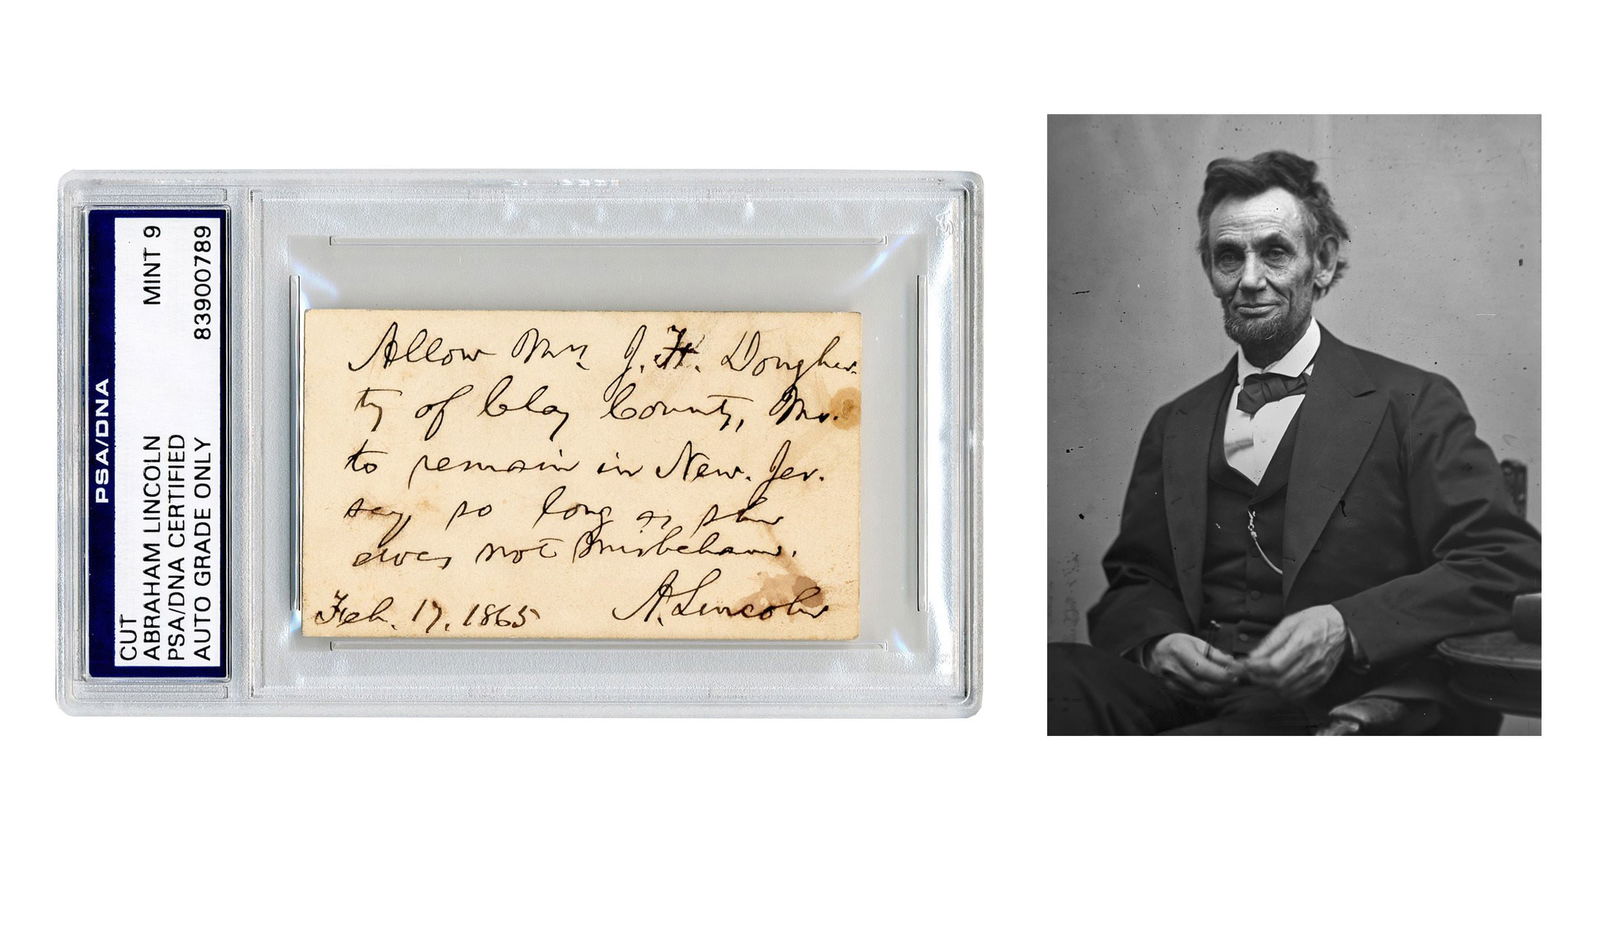 PSA/DNA
CUT
ABRAHAM LINCOLN MINT 9
PSA/DNA CERTIFIED
AUTO GRADE ONLY 83900789
Allow Mrs. J. H. Dougher-
ty of Clay County, Mo.
to remain in New-Jer-
sey, so long as she
does not misbehave.
Feb. 17, 1865 A. Lincoln